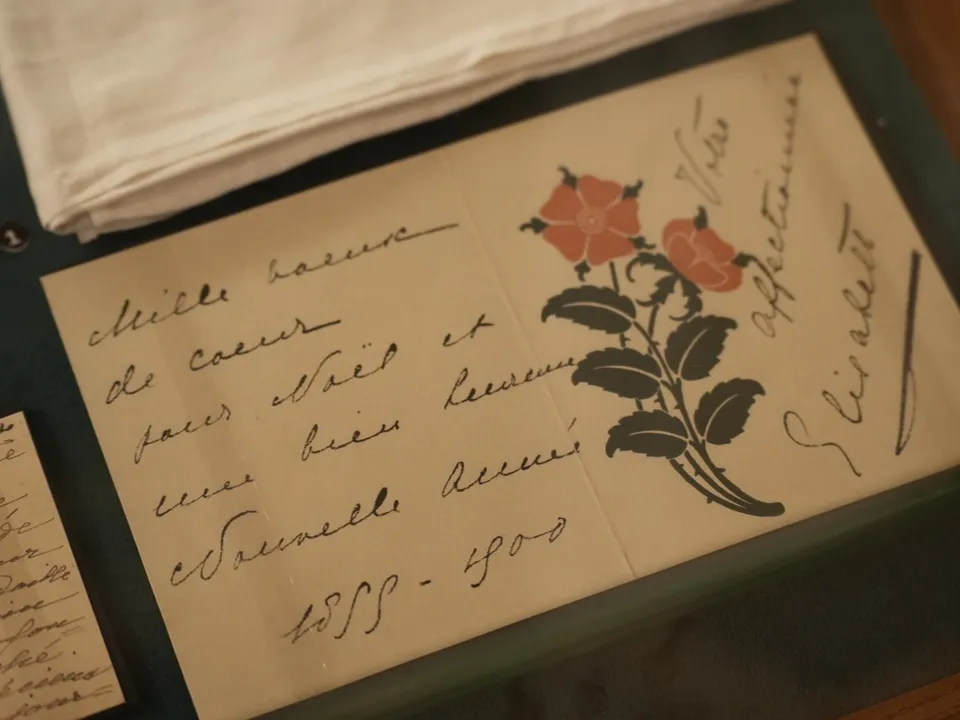 Mille voeux
de coeur
pour Noël et
une bien heureuse
Nouvelle Année
1899 - 1900
Votre
affectionnée
Elisabeth
1
de